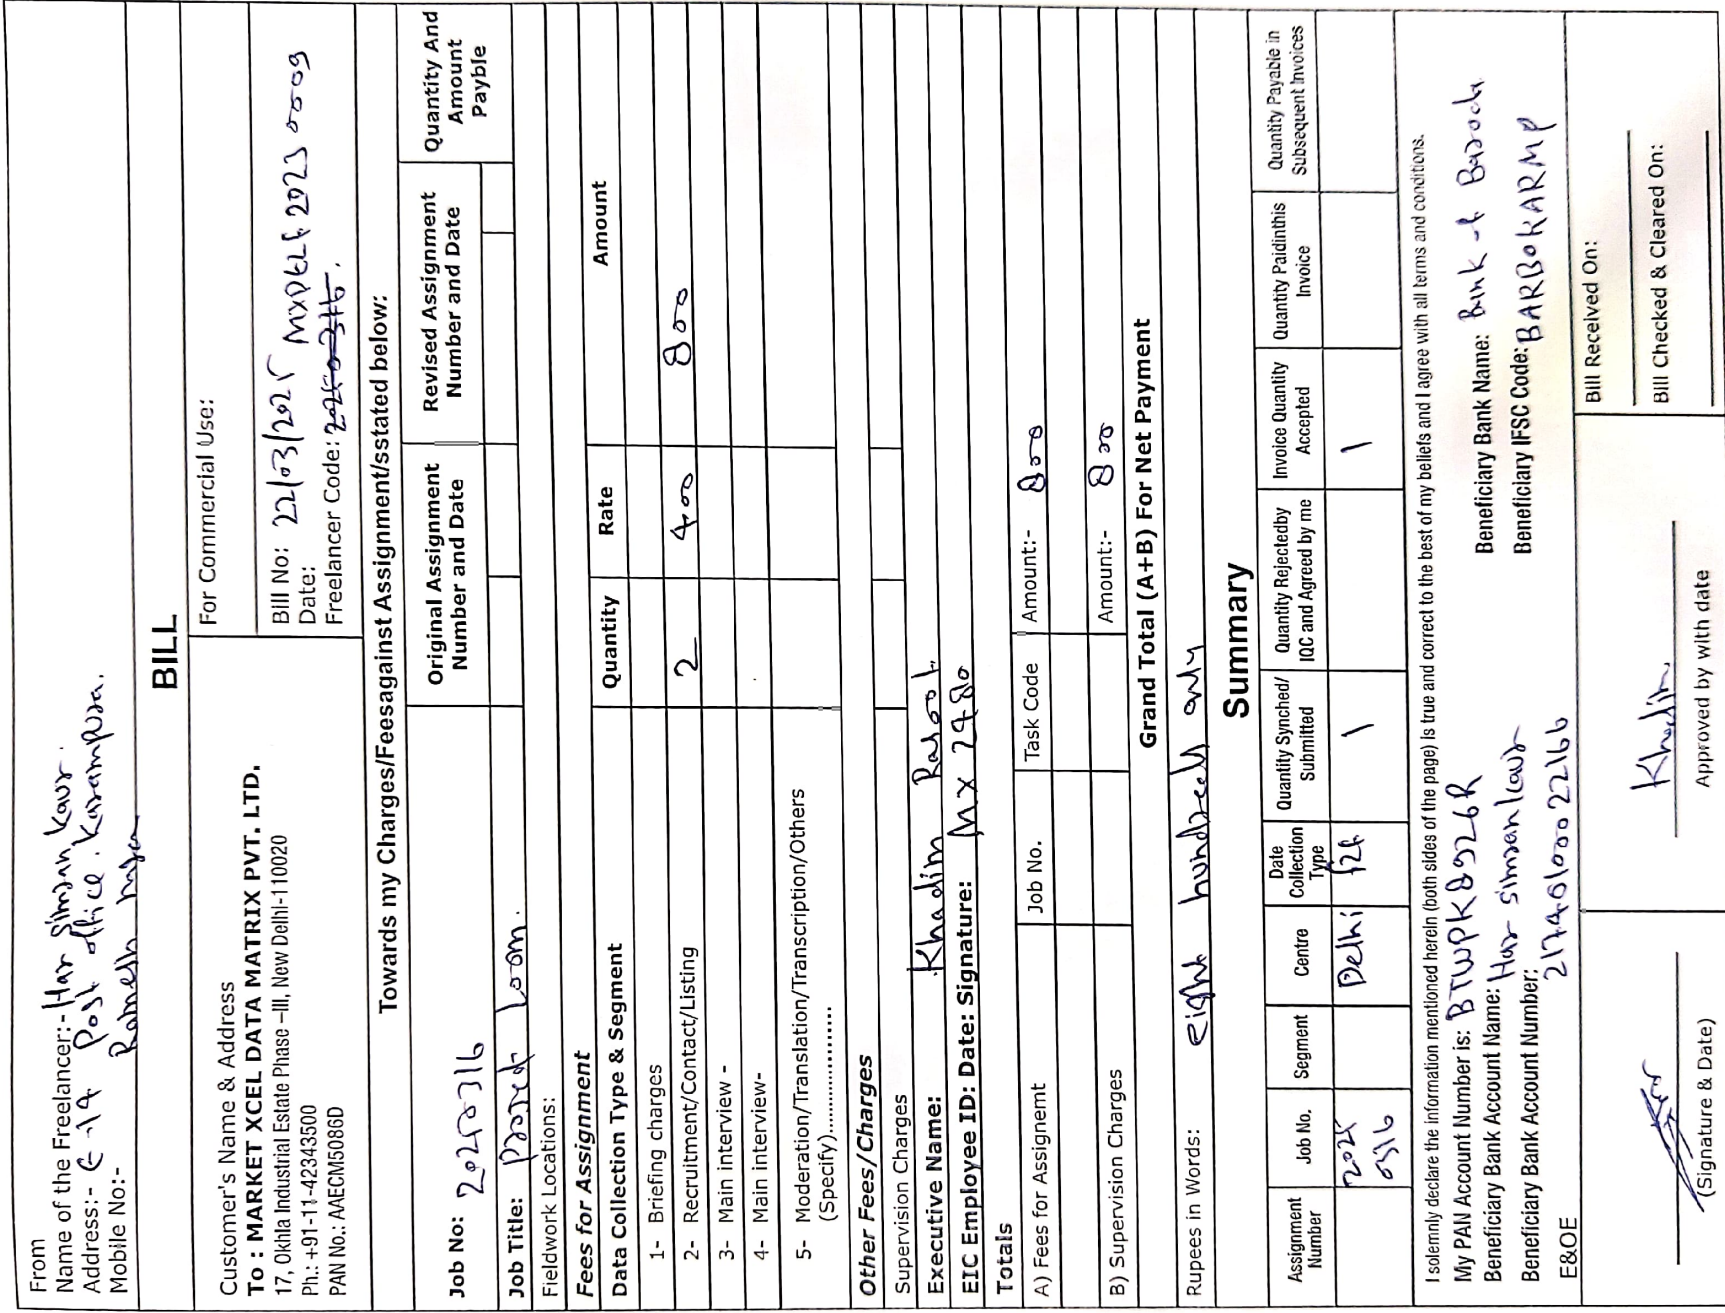 From
Name of the Freelancer:- Har Simran Kaur.
Address:- E-14 Post office. Karampura.
Mobile No:- Ramesh
BILL
Customer's Name & Address
To : MARKET XCEL DATA MATRIX PVT. LTD.
17, Okhla Industrial Estate Phase –III, New Delhi-110020
Ph.: +91-11-42343500
PAN No.: AAECM5086D
For Commercial Use:
Bill No: 22/03/2025
Date:
Freelancer Code:
Towards my Charges/Feesagainst Assignment/sstated below:
Job No: 20250316
Original Assignment Number and Date
Revised Assignment Number and Date
Quantity And Amount Payble
Job Title:
Fieldwork Locations:
Fees for Assignment
Data Collection Type & Segment Quantity Rate Amount
1- Briefing charges
2- Recruitment/Contact/Listing 2 400 800
3- Main interview -
4- Main interview-
5- Moderation/Translation/Transcription/Others
(Specify)..................
Other Fees/Charges
Supervision Charges
Executive Name: Khadim Rasool
EIC Employee ID: Date: Signature: MX 2480
Totals Job No. Task Code Amount:- 800
A) Fees for Assignemt
B) Supervision Charges Amount:- 800
Grand Total (A+B) For Net Payment
Rupees in Words: eight hundred only
Summary
Assignment Number Job No. Segment Centre Date Collection Type Quantity Synched/ Submitted Quantity Rejectedby IQC and Agreed by me Invoice Quantity Accepted Quantity Paidinthis Invoice Quantity Payable in Subsequent Invoices
2025 0316 Delhi f2f 1 1
I solemnly declare the information mentioned herein (both sides of the page) is true and correct to the best of my beliefs and I agree with all terms and conditions.
My PAN Account Number is: BTWPK8926R
Beneficiary Bank Account Name: Har Simran Kaur
Beneficiary Bank Name: Bank of Baroda
Beneficiary Bank Account Number: 21740100022166
Beneficiary IFSC Code: BARB0KARAMP
E&OE
Bill Received On:
Bill Checked & Cleared On:
Khadim
(Signature & Date)
Approved by with date